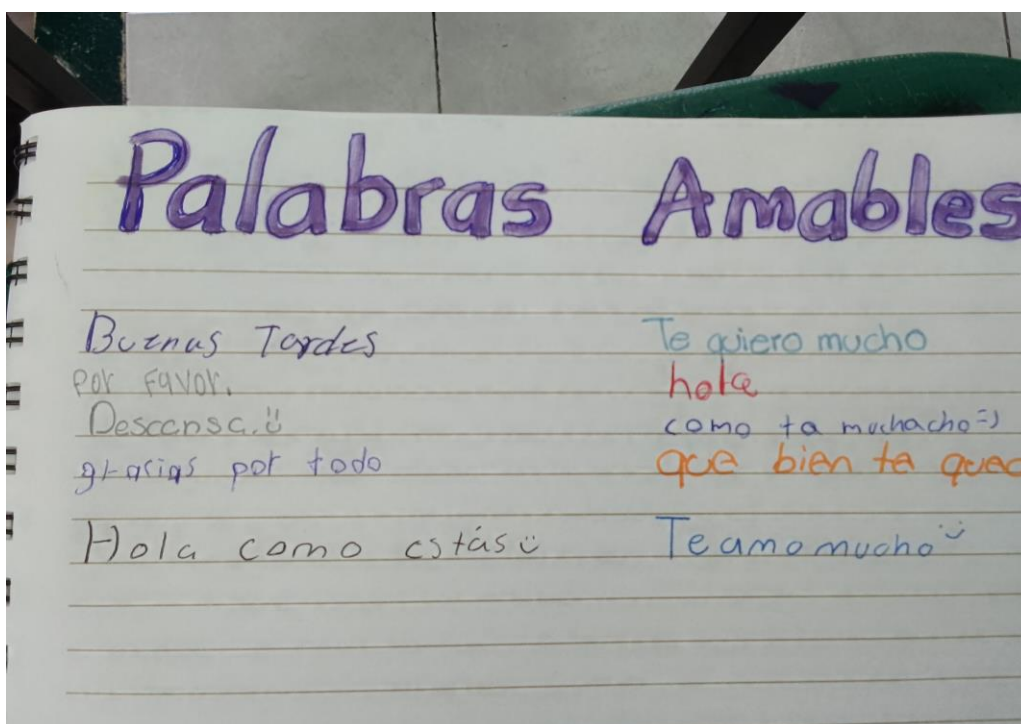 Palabras Amables
Buenas Tardes
por favor.
Descansa.
grasias por todo
Hola como estás
Te quiero mucho
hola
como ta muchacho=)
que bien te
Te amo mucho